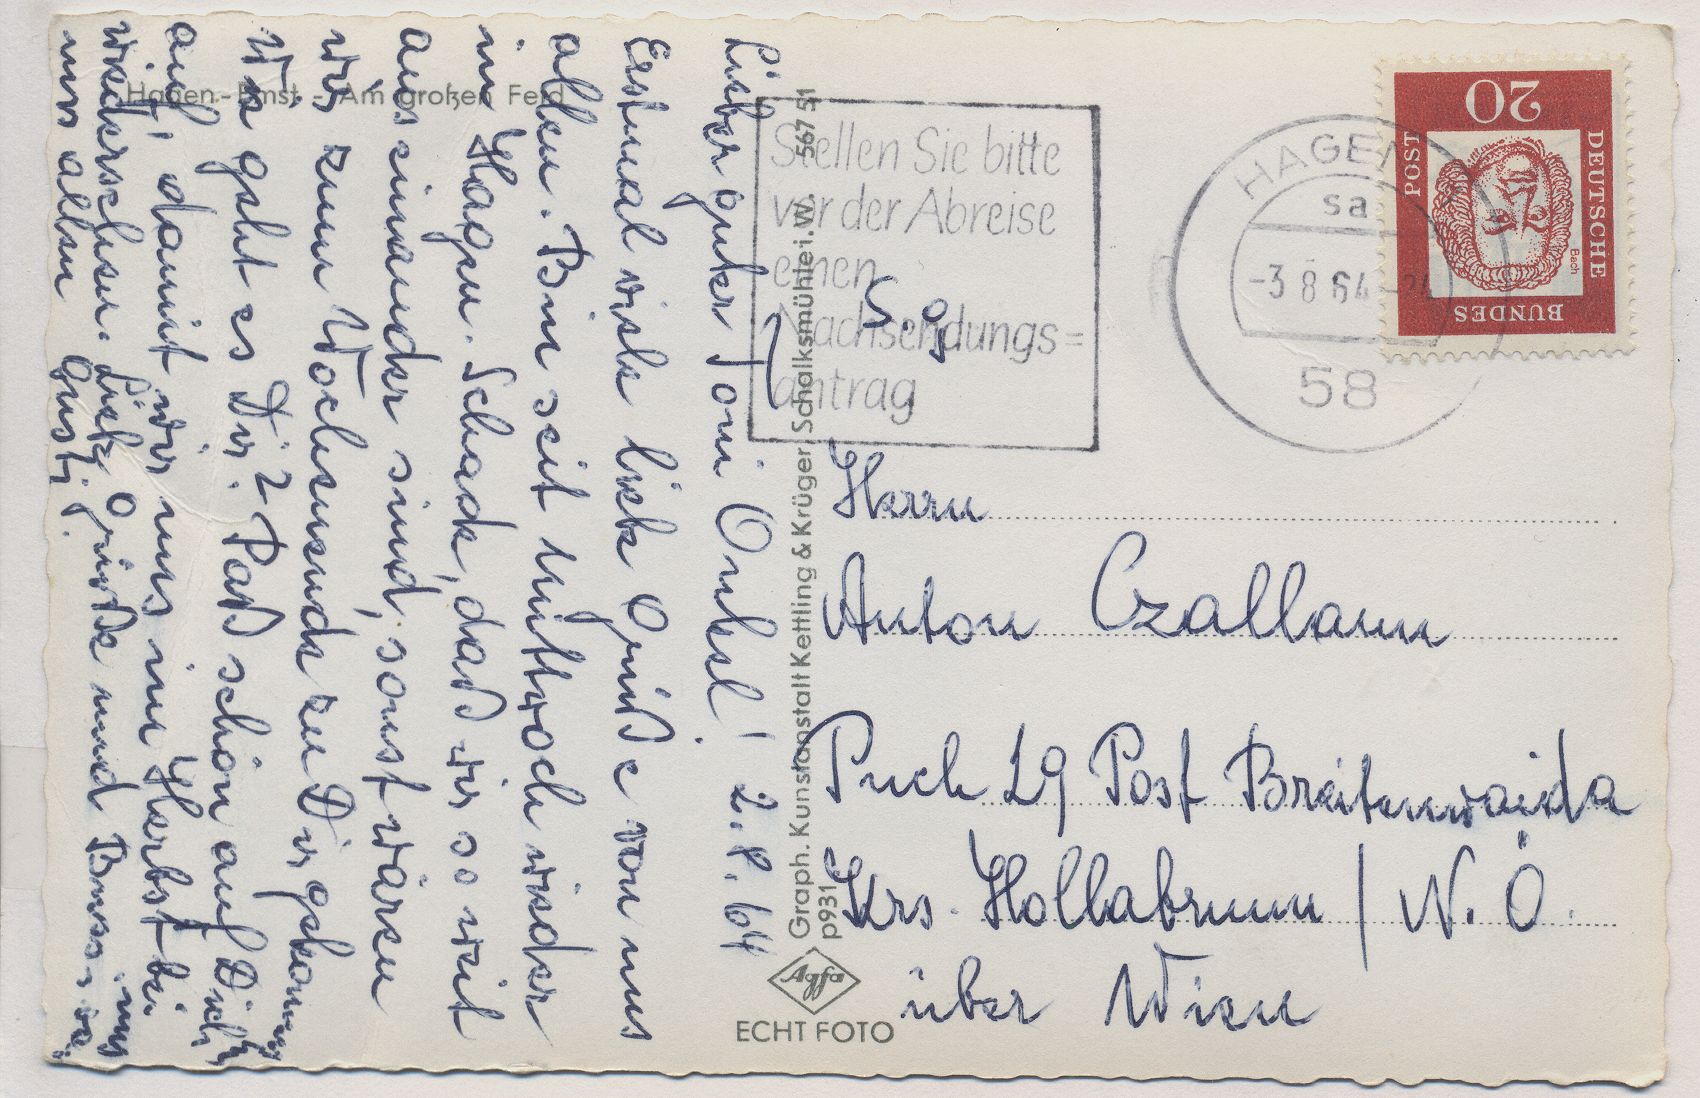 Hagen-Emst - Am großen Feld
Lieber guter Toni Onkel! 2.8.64
Erstmal viele liebe Grüße von uns
allen. Bin seit Mittwoch wieder
in Hagen. Schade, daß wir so weit
auseinander sind, sonst wären
wir zum Wochenende zu Dir gekommen
Wie geht es Dir? Paß schön auf Dich
auf, damit wir uns im Herbst bei uns
wiedersehen. Liebe Grüße und Bussi
von allen Gusti.
Graph. Kunstanstalt Kettling & Krüger, Schalksmühle i.W. 567 51
p931
Agfa
ECHT FOTO
Stellen Sie bitte
vor der Abreise
einen
Nachsendungs=
antrag
HAGEN
sa
-3.8.64-
58
20
DEUTSCHE
BUNDES
POST
Bach
Herrn
Anton Czallann
Puch 29 Post Breitenwaida
Krs. Hollabrunn / N.Ö.
über Wien